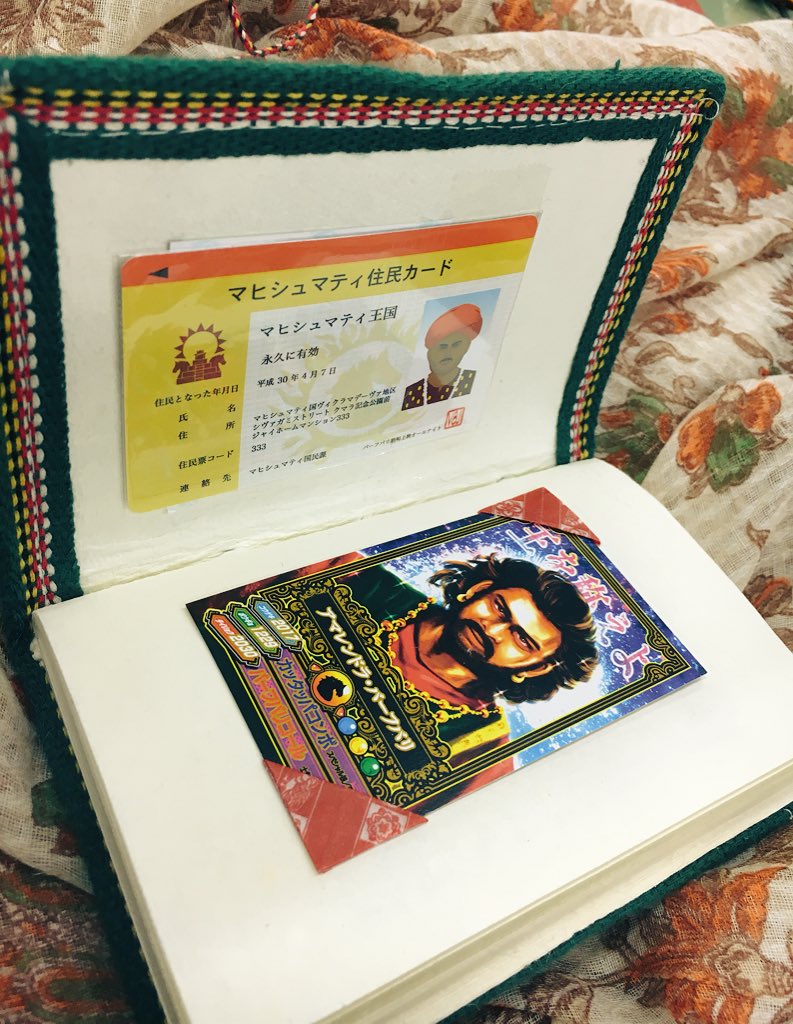 マヒシュマティ住民カード
マヒシュマティ王国
永久に有効
住民となった年月日
平成 30 年 4 月 7 日
氏 名
住 所
マヒシュマティ国ヴィクラマデーヴァ地区
シヴァガミストリート クマラ記念公園前
ジャイホームマンション333
住民票コード
333
連 絡 先
マヒシュマティ国民課
王を称えよ
アマレンドラ・バーフバリ
2017
1239
2030
カッタッパコンボ